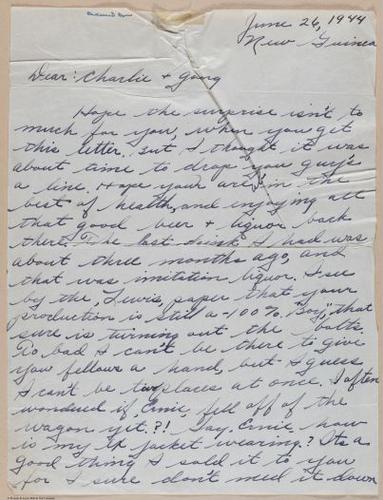 June 26, 1944
New Guinea
Dear: Charlie + Gang
Hope the surprise isn't to
much for you, when you get
this letter. But I thought it was
about time to drop you guy's
a line. Hope your are in the
best of health, and enjoying all
that good beer + liquor back
there. The last drink I had was
about three months ago, and
that was imitation liquor. I see
by the, Lewis, paper that your
production is still a-100%. "Boy", that
sure is turning out the bolts.
To bad I can't be there to give
you fellows a hand, but I guess
I can't be two places at once. I often
wonderd if, Ernie, fell off of the
wagon yet.?! Say, Ernie, how
is my jacket wearing.? Its a
good thing I sold it to you
for I sure don't need it down